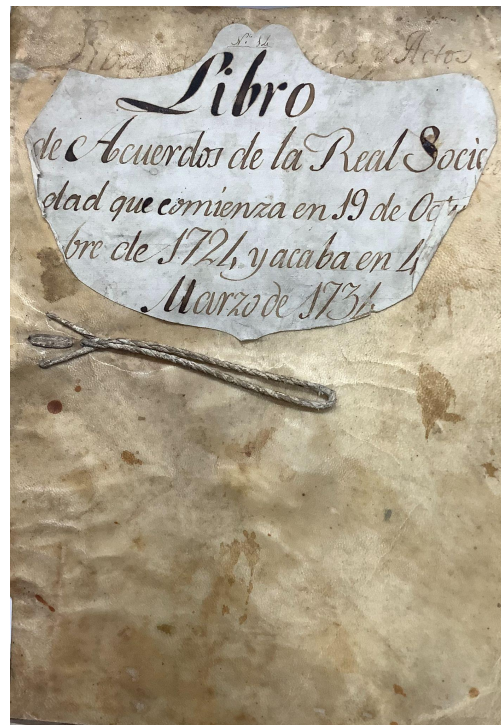 Libro
de Acuerdos de la Real Socie
dad que comienza en 19 de Octu
bre de 1724, y acaba en 4
Marzo de 1734